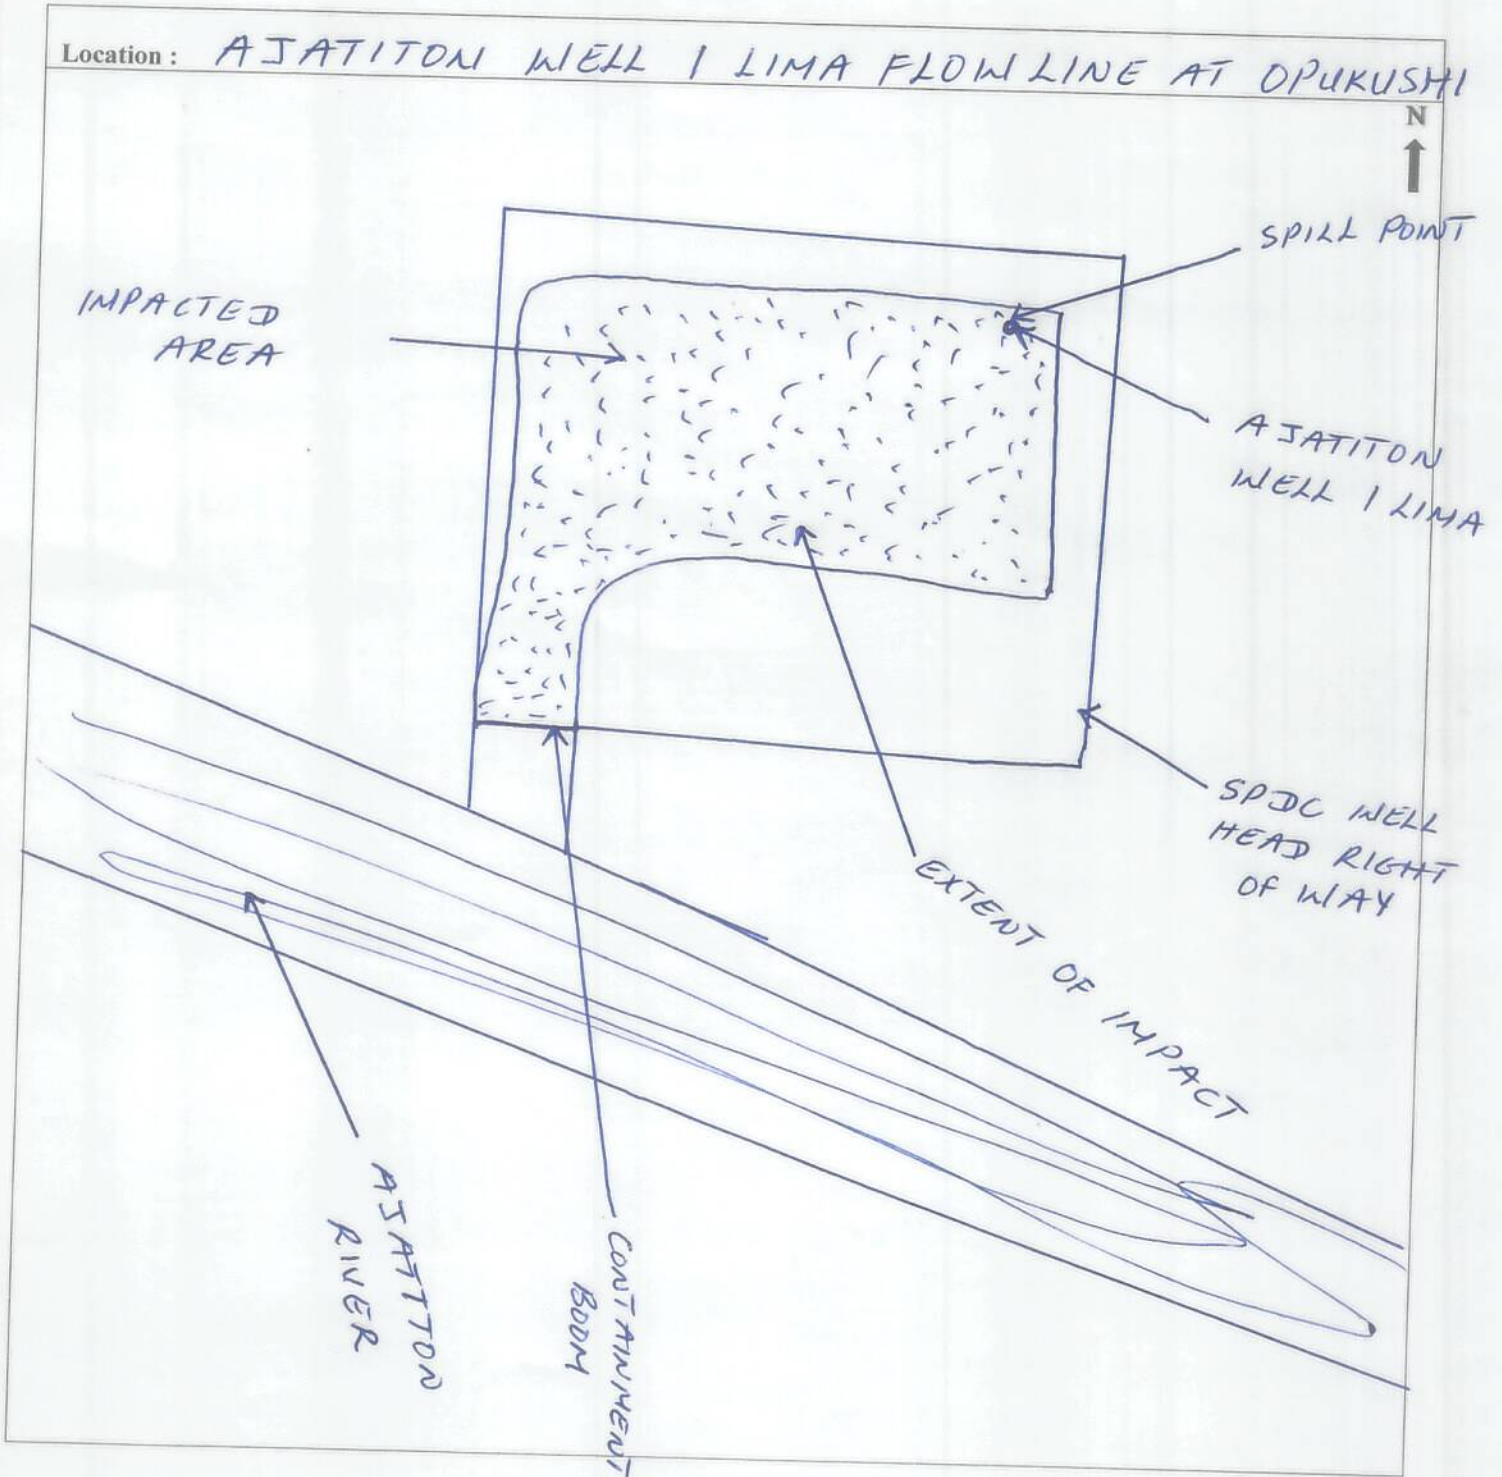 Location : AJATITON WELL 1 LIMA FLOWLINE AT OPUKUSHI
N
SPILL POINT
IMPACTED
AREA
AJATITON
WELL 1 LIMA
SPDC WELL
HEAD RIGHT
OF WAY
EXTENT OF IMPACT
AJATITON
RIVER
CONTAINMENT
BOOM